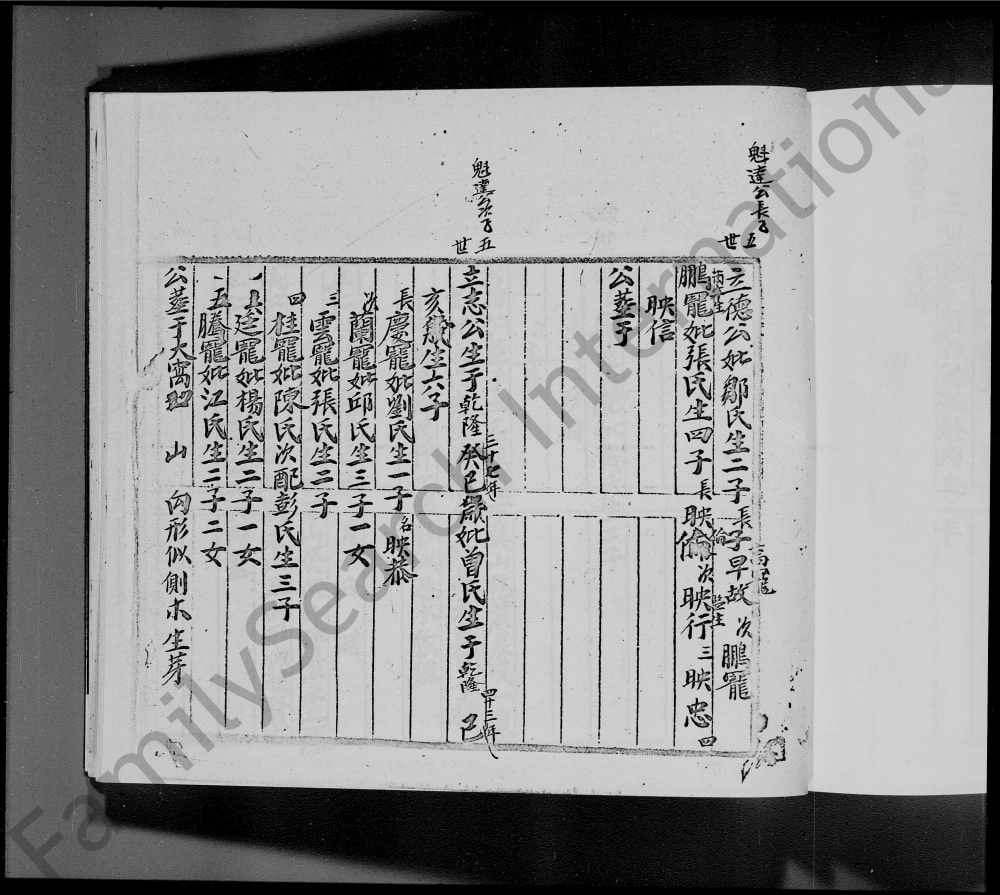 魁達公長子
五世
立德公妣鄒氏生二子長子早故 次鵬寵
高寵
鵬寵妣張氏生四子 長映倫 次映行 三映忠 四
倫
監生
映信
公葬于
魁達公次子
五世
立志公生于乾隆癸巳歲妣曾氏生于乾隆 己
三十七年
四十三年
亥歲生六子
長慶寵妣劉氏生一子名映恭
次蘭寵妣邱氏生三子一女
三雲寵妣張氏生二子
四桂寵妣陳氏次配彭氏生三子
廷寵妣楊氏生二子一女
五騰寵妣江氏生二子二女
公葬于大窩 山 向形似側木生芽
FamilySearch International